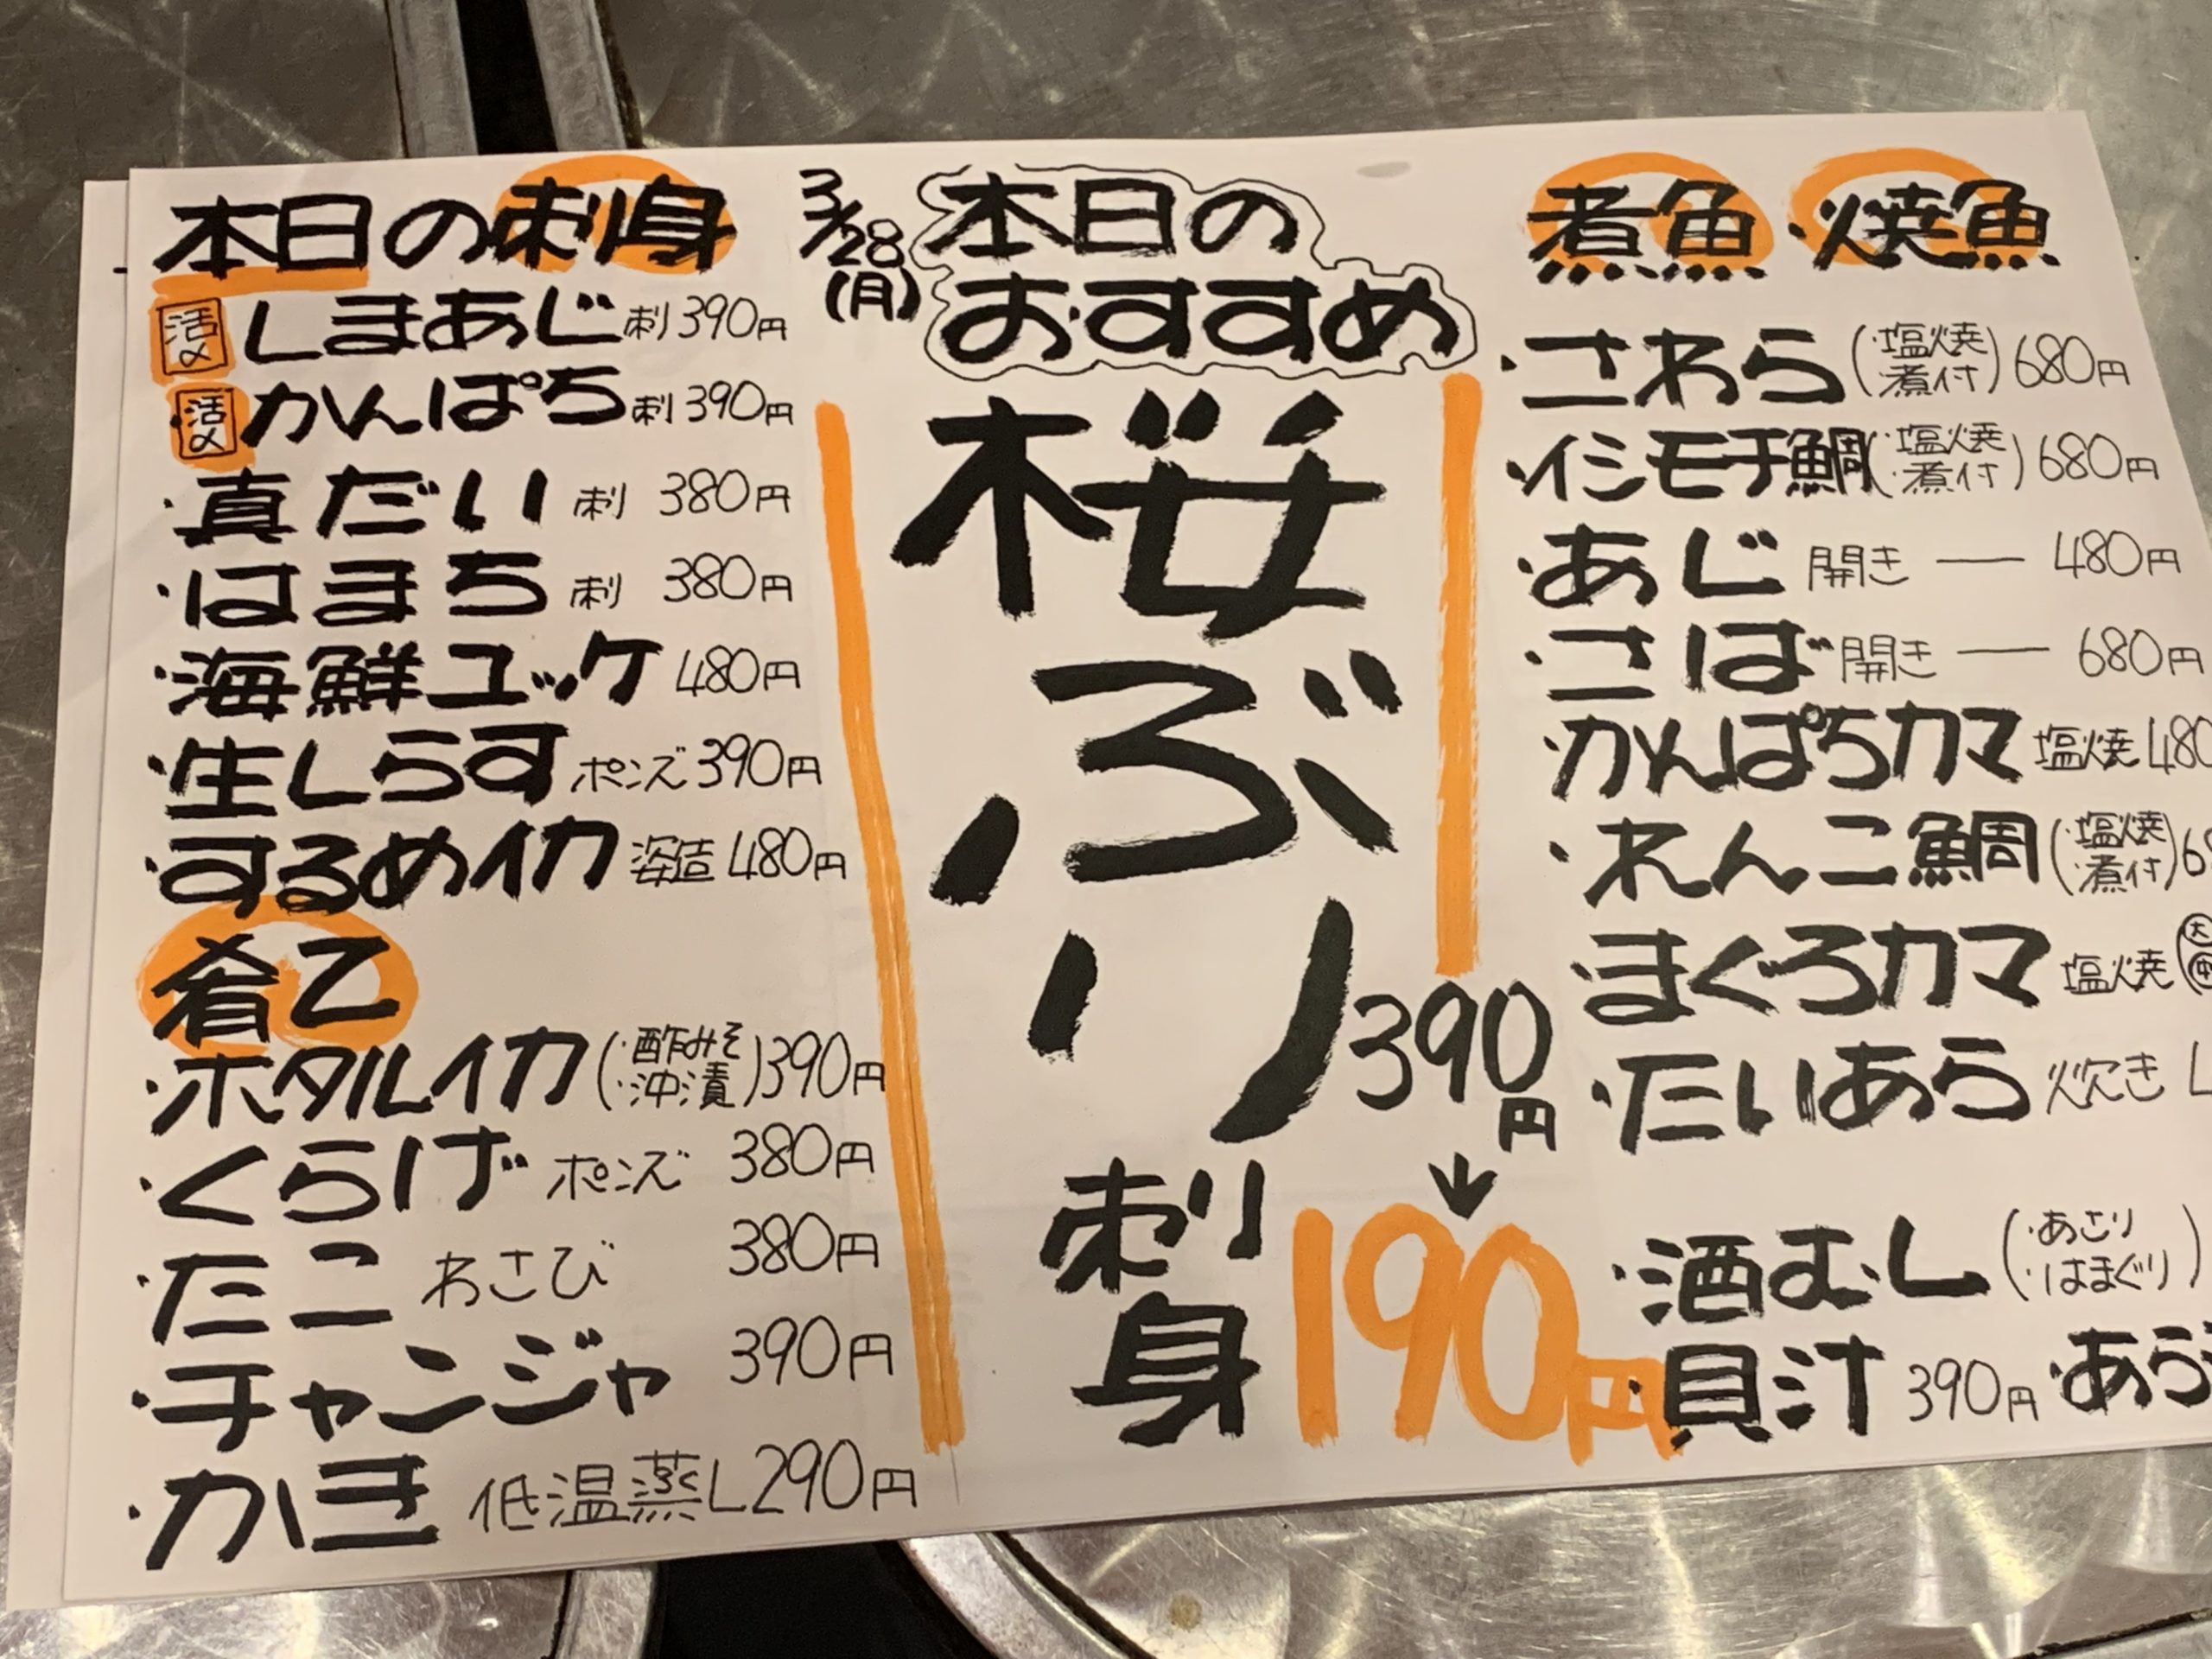 本日の刺身
活〆 しまあじ 刺 390円
活〆 かんぱち 刺 390円
・真だい 刺 380円
・はまち 刺 380円
・海鮮ユッケ 480円
・生しらす ポンズ 390円
・するめイカ 姿造 480円
肴乙
・ホタルイカ (・酢みそ ・沖漬) 390円
・くらげ ポンズ 380円
・たこ わさび 380円
・チャンジャ 390円
・かき 低温蒸し 290円
3/28(月)
本日の
おすすめ
桜ぶり
刺身
390円
↓
190円
煮魚・焼魚
・さわら (・塩焼 ・煮付) 680円
・イシモチ鯛 (・塩焼 ・煮付) 680円
・あじ 開き ― 480円
・さば 開き ― 680円
・かんぱちカマ 塩焼 480
・れんこ鯛 (・塩焼 ・煮付) 68
・まぐろカマ 塩焼 大
・たいあら 炊き
・酒むし (・あさり ・はまぐり)
・貝汁 390円 ・あら